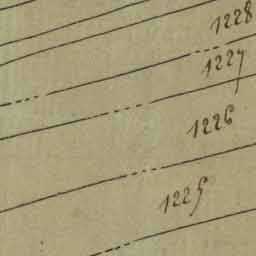 1228
1227
1226
1225